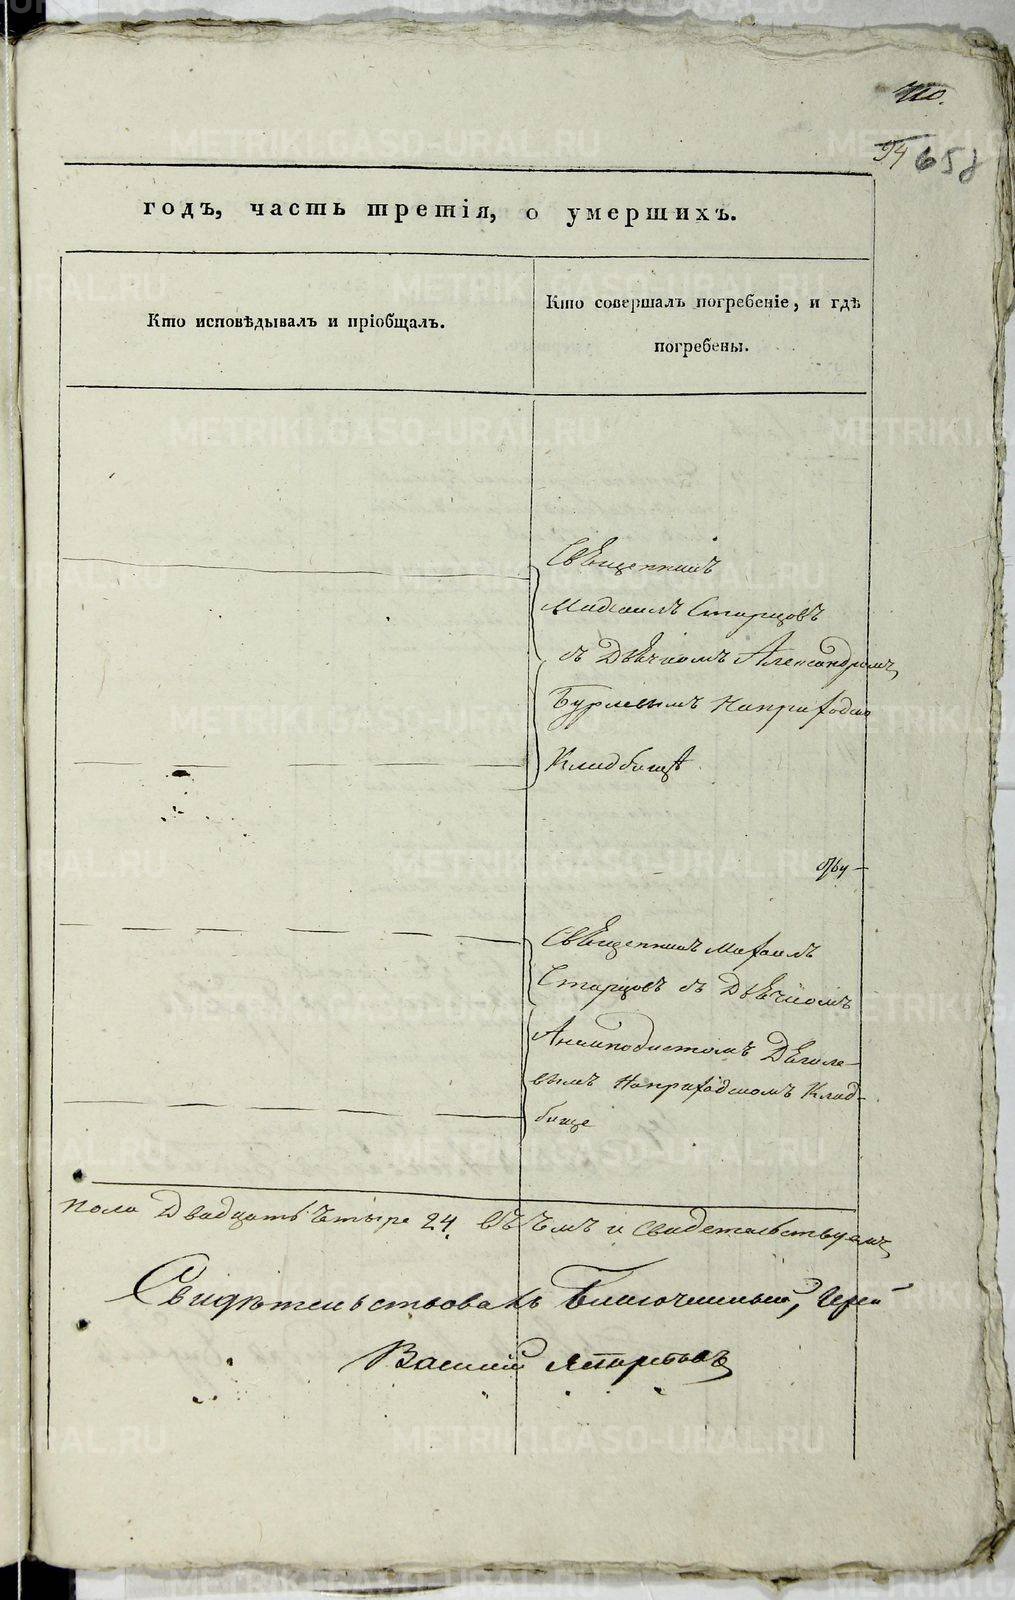 94 658
годъ, часть третія, о умершихъ.
Кто исповѣдывалъ и пріобщалъ.
Кто совершалъ погребеніе, и гдѣ
погребены.
Священникъ
Михаилъ Старцовъ
съ Дьячкомъ Александромъ
Бурлевымъ
Кладбищѣ
Священникъ Михаилъ
Старцовъ съ Дьячкомъ
Анемподистомъ Дѣголе-
вымъ Наприходскомъ Клад-
бище
пола Двадцать четыре 24 свидетельствуемъ
Свидѣтельствовалъ Благочинный, Іерей
Василий
METRIKI.GASO-URAL.RU